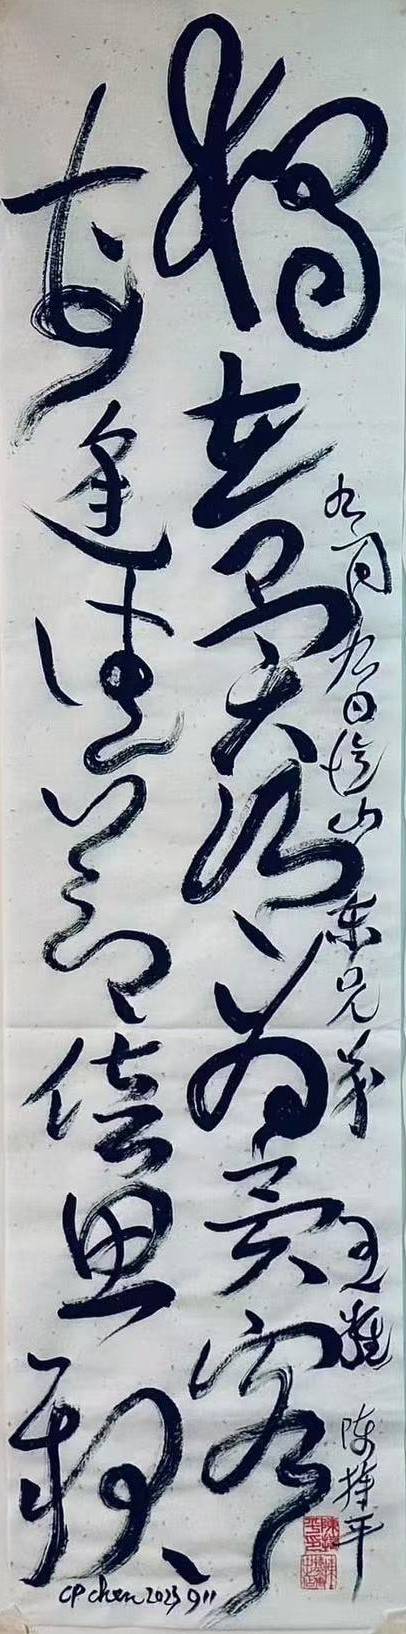 獨在異鄉為異客
每逢佳節倍思親
九月九日憶山東兄弟
王維
陳擇平
CP chen 2023 9 11